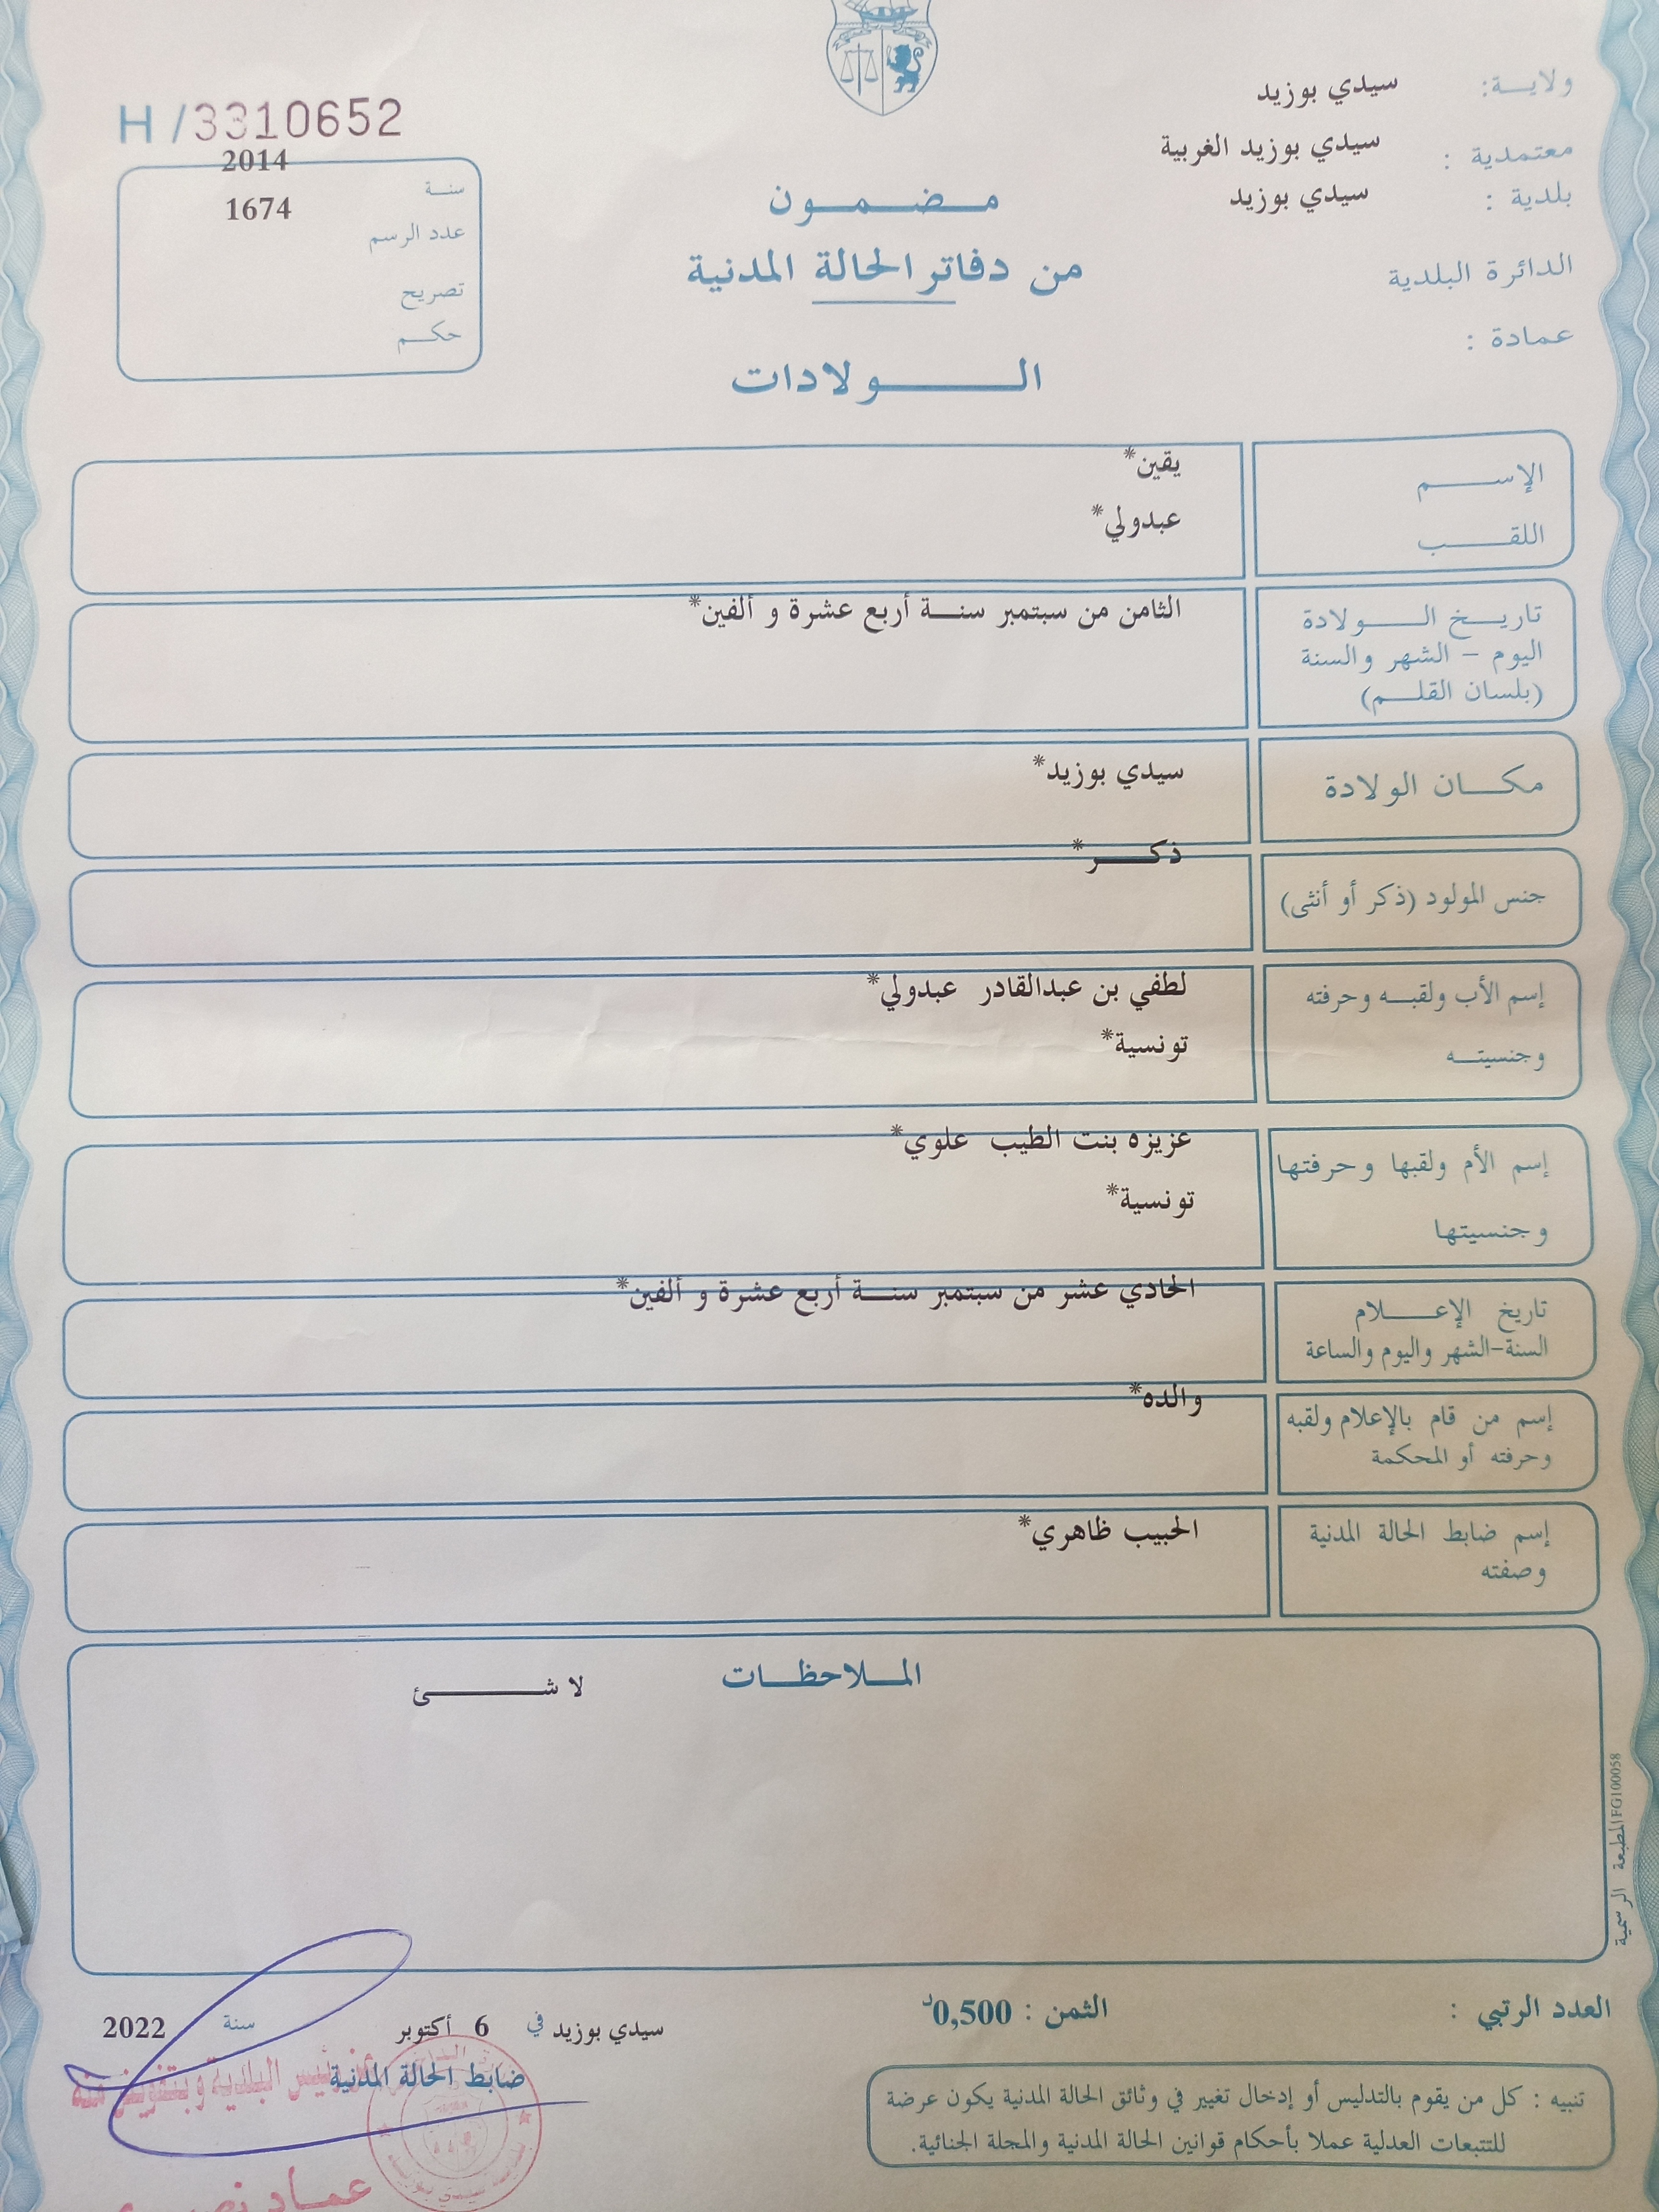 ولاية: سيدي بوزيد
معتمدية : سيدي بوزيد الغربية
بلدية : سيدي بوزيد
الدائرة البلدية
عمادة :
مضمون
من دفاتر الحالة المدنية
الولادات
H /3310652
سنة 2014
عدد الرسم 1674
تصريح
حكم
الإسم يقين*
اللقب عبدولي*
تاريخ الولادة الثامن من سبتمبر سنة أربع عشرة و ألفين*
اليوم – الشهر والسنة
(بلسان القلم)
مكان الولادة سيدي بوزيد*
جنس المولود (ذكر أو أنثى) ذكر*
إسم الأب ولقبه وحرفته لطفي بن عبدالقادر عبدولي*
وجنسيته تونسية*
إسم الأم ولقبها وحرفتها عزيزه بنت الطيب علوي*
وجنسيتها تونسية*
تاريخ الإعلام الحادي عشر من سبتمبر سنة أربع عشرة و ألفين*
السنة-الشهر واليوم والساعة
إسم من قام بالإعلام ولقبه والده*
وحرفته أو المحكمة
إسم ضابط الحالة المدنية الحبيب ظاهري*
وصفته
الملاحظات لا شئ
المطبعة الرسمية FG100058
العدد الرتبي :
الثمن : 0,500د
سيدي بوزيد في 6 أكتوبر سنة 2022
ضابط الحالة المدنية
رئيس البلدية وبتفويض منه
عماد
تنبيه : كل من يقوم بالتدليس أو إدخال تغيير في وثائق الحالة المدنية يكون عرضة
للتتبعات العدلية عملا بأحكام قوانين الحالة المدنية والمجلة الجنائية.